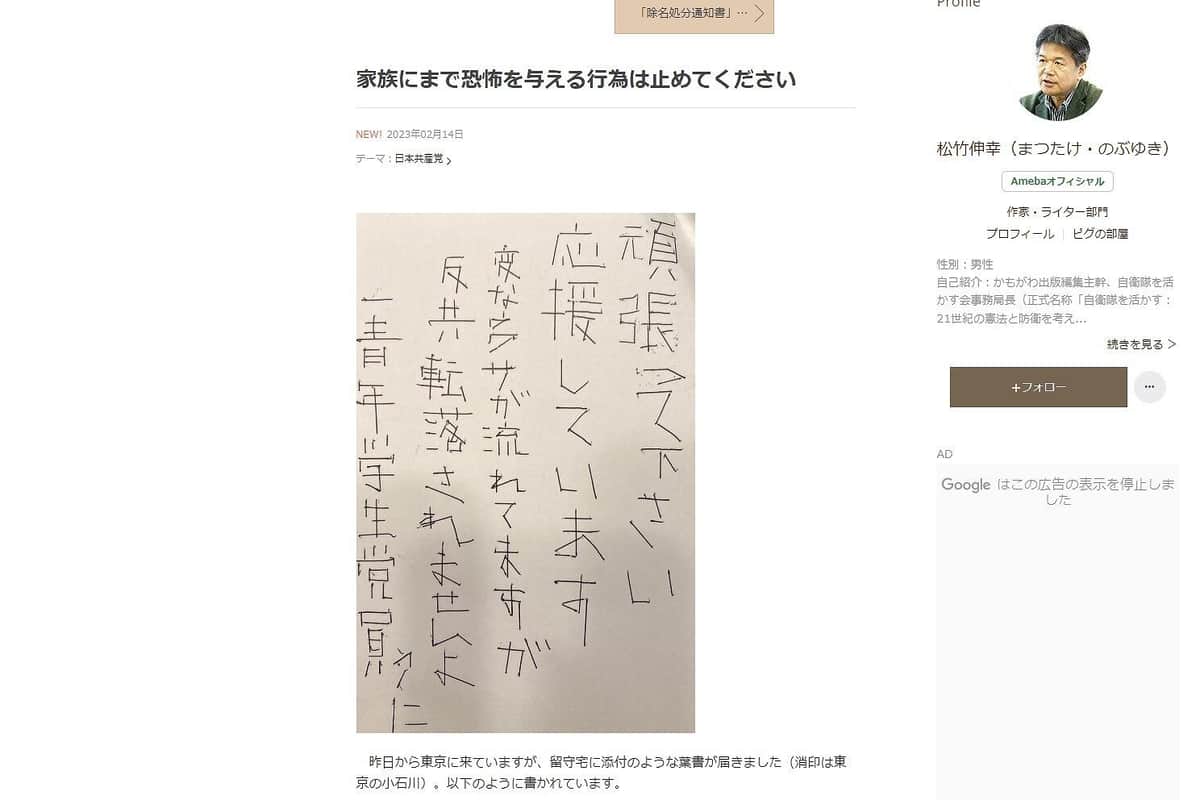 「除名処分通知書」…
家族にまで恐怖を与える行為は止めてください
NEW! 2023年02月14日
テーマ：日本共産党
頑張って下さい
応援しています
変なウワサが流れてますが
反共転落されませんよ
うに
一青年学生党員
昨日から東京に来ていますが、留守宅に添付のような葉書が届きました（消印は東
京の小石川）。以下のように書かれています。
Profile
松竹伸幸（まつたけ・のぶゆき）
Amebaオフィシャル
作家・ライター部門
プロフィール ピグの部屋
性別：男性
自己紹介：かもがわ出版編集主幹、自衛隊を活
かす会事務局長（正式名称「自衛隊を活かす：
21世紀の憲法と防衛を考え...
続きを見る
+フォロー
AD
Google はこの広告の表示を停止しま
した